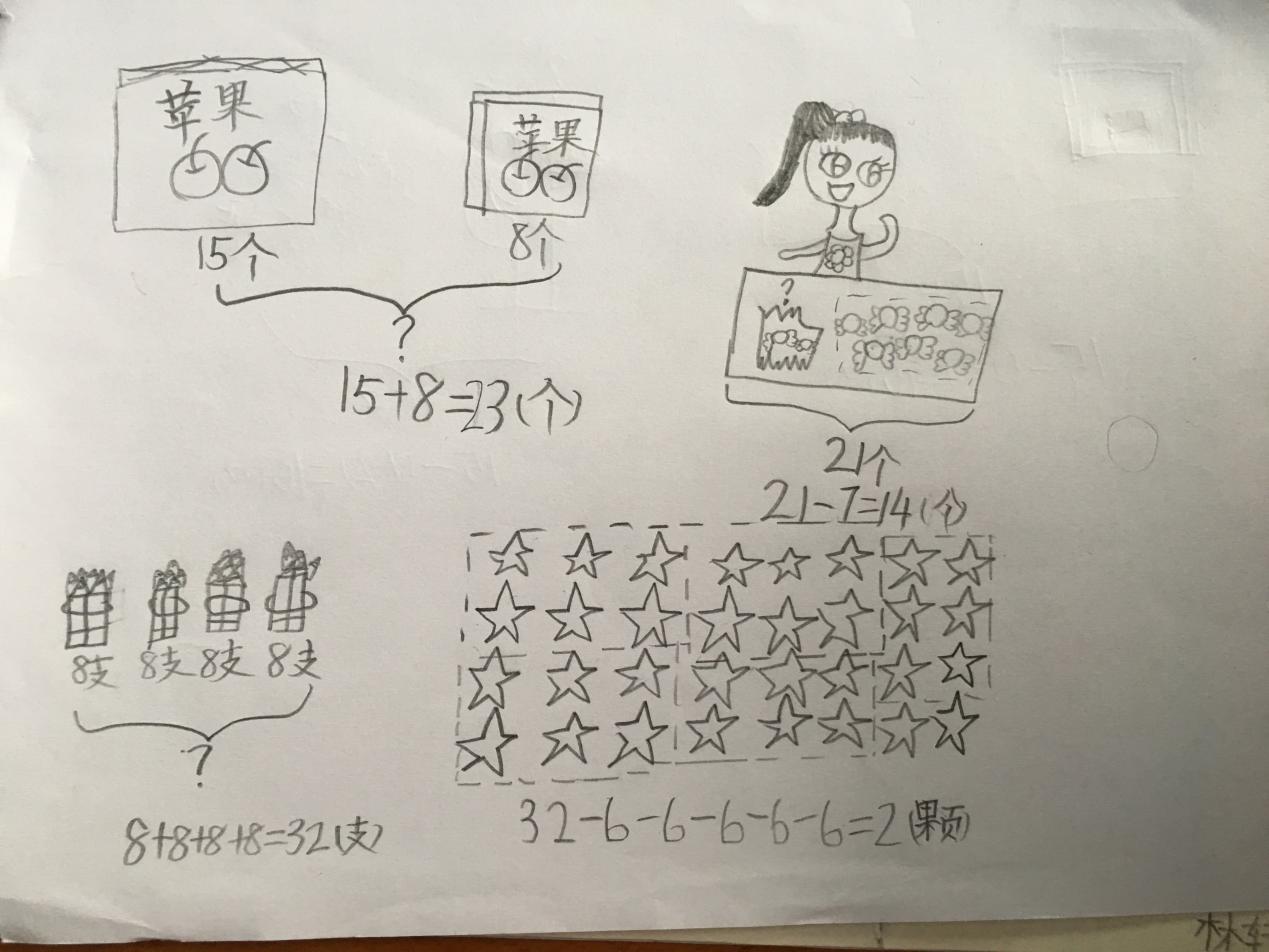 苹果
苹果
15个
8个
?
15+8=23(个)
?
21个
21-7=14(个)
8支 8支 8支 8支
?
8+8+8+8=32(支)
32-6-6-6-6-6=2(颗)